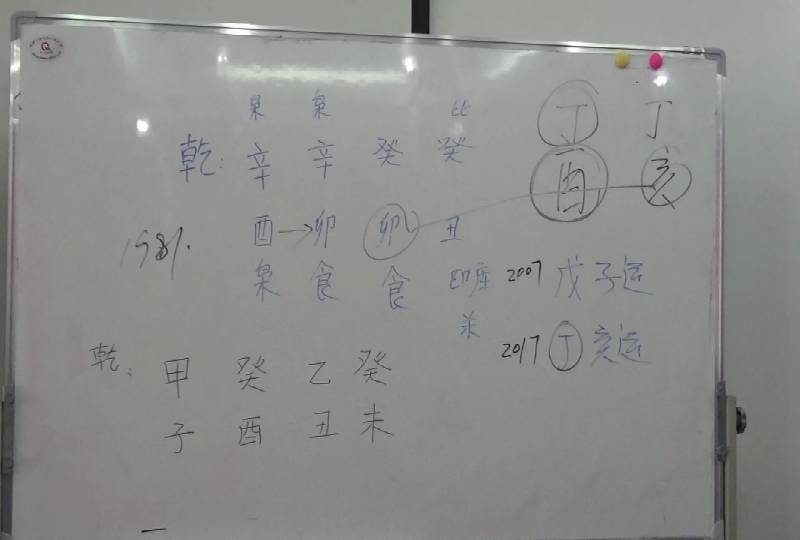 枭 枭 比
乾: 辛 辛 癸 癸
1981. 酉→卯 卯 丑
枭 食 食 印库
杀
丁 丁
酉 亥
2007 戊子运
2017 丁亥运
乾: 甲 癸 乙 癸
子 酉 丑 未